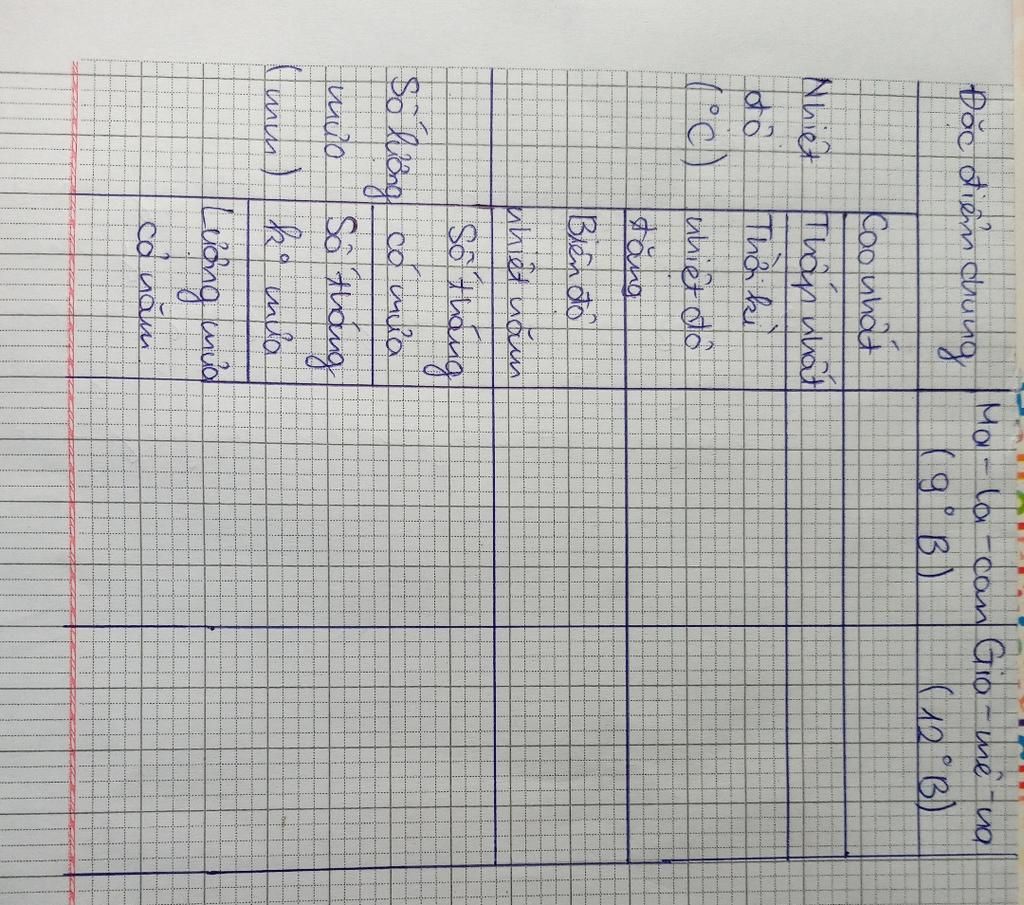 Đặc điểm chung
Ma-la-can
(9°B)
Gia-mê-na
(12°B)
Nhiệt
độ
(°C)
Cao nhất
Thấp nhất
Thời kì
nhiệt độ
tăng
Biên độ
nhiệt năm
Số lượng
mưa
(mm)
Số tháng
có mưa
Số tháng
k° mưa
Lượng mưa
cả năm